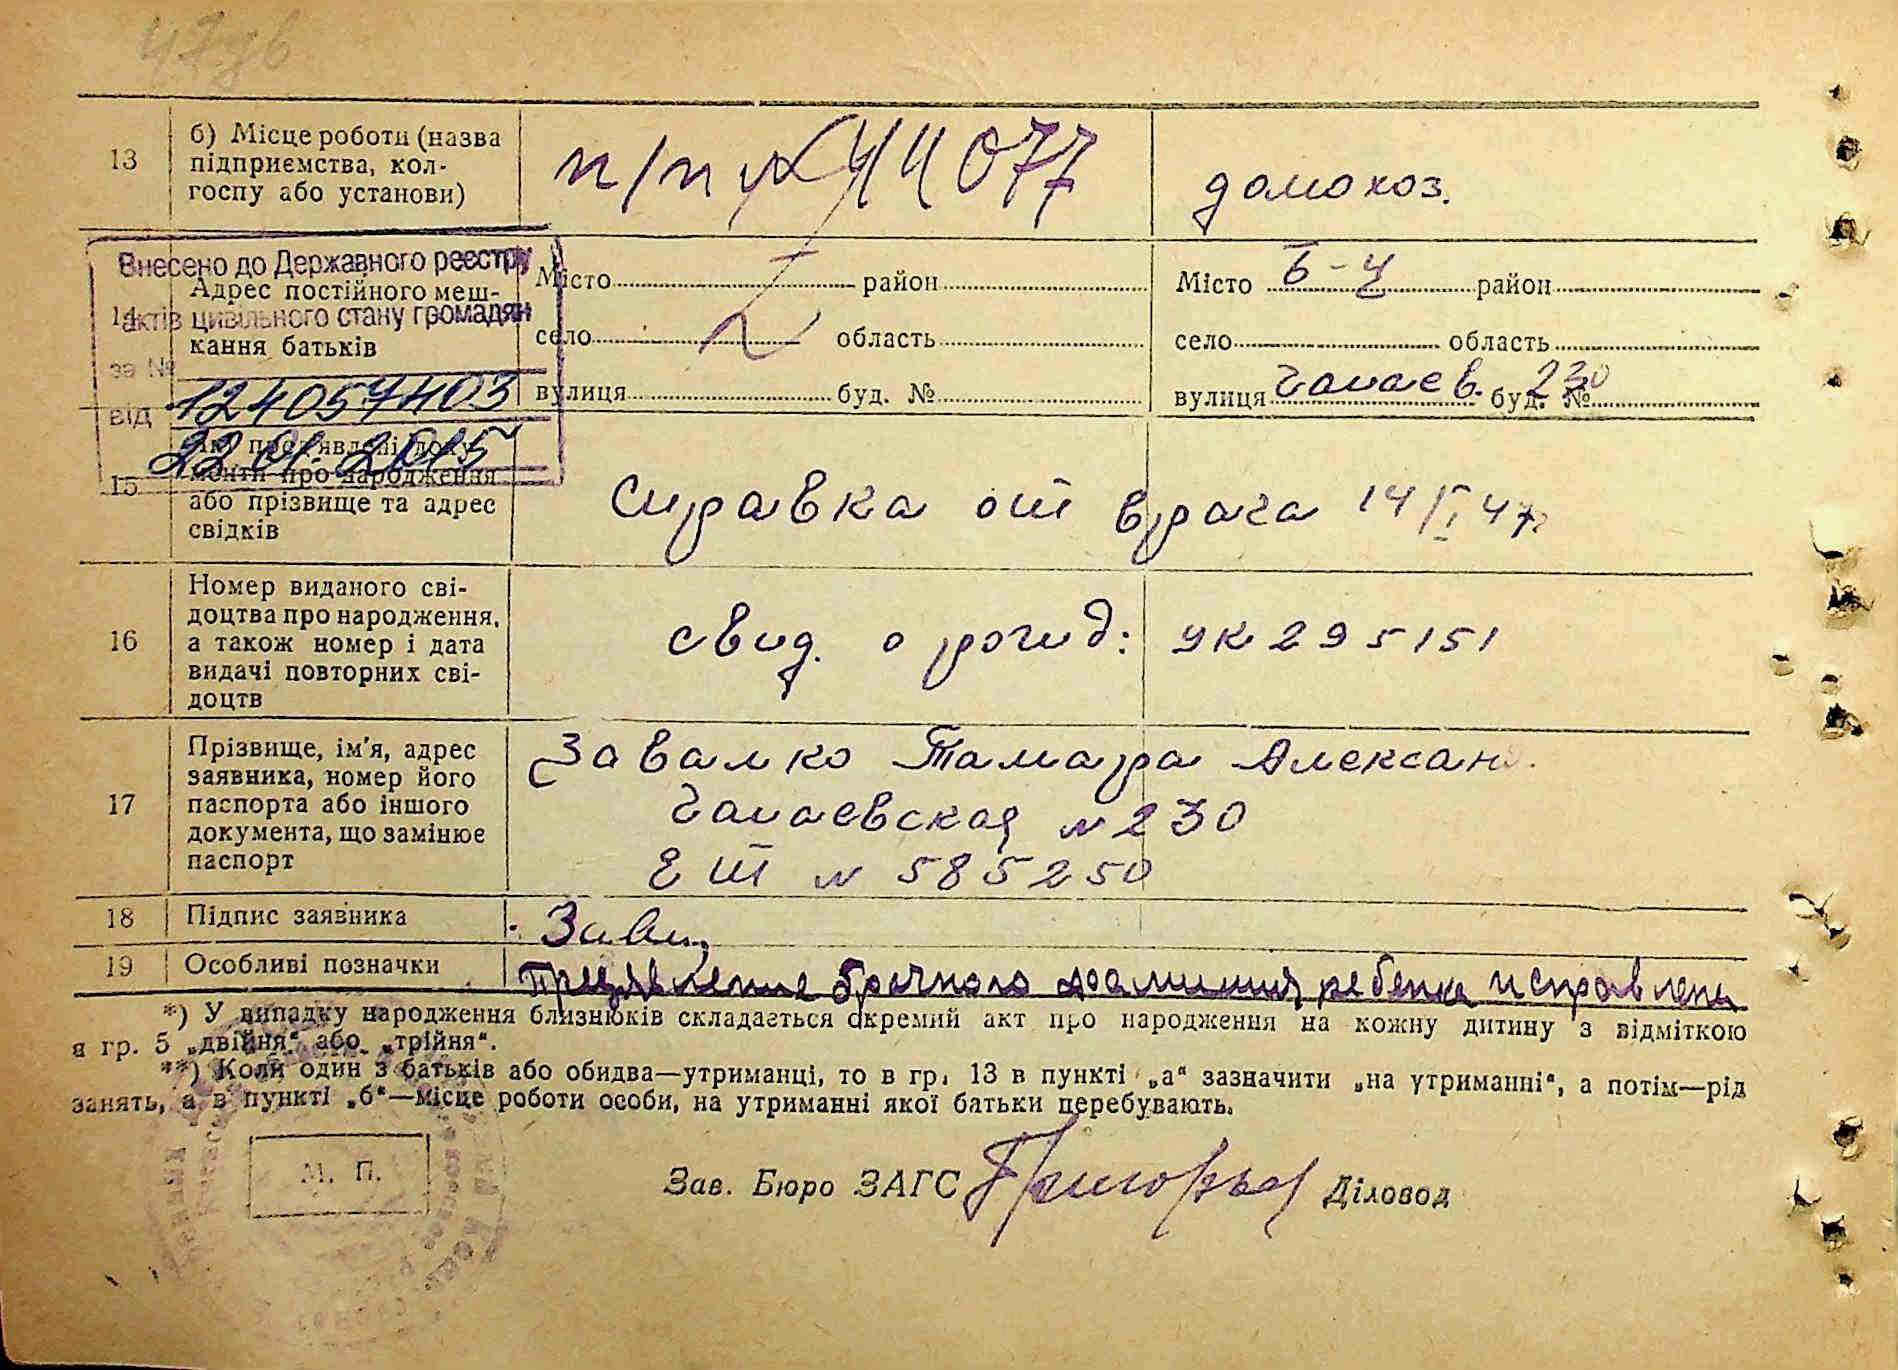 13
б) Місце роботи (назва
підприємства, кол-
госпу або установи)
п/п № 44077
домохоз.
Внесено до Державного реєстру
актів цивільного стану громадян
за №
124057403
від
22 01. 2015
14
Адрес постійного меш-
кання батьків
Місто район
село область
вулиця буд. №
Місто Б-Ц район
село область
вулиця Чапаев. буд. № 230
15
або прізвище та адрес
свідків
Справка от врача 14/I 47г
16
Номер виданого сві-
доцтва про народження,
а також номер і дата
видачі повторних сві-
доцтв
свид. о рожд: УК 295151
17
Прізвище, ім'я, адрес
заявника, номер його
паспорта або іншого
документа, що замінює
паспорт
Завалко Тамара Алексан
Чапаевская № 230
ЕШ № 585250
18
Підпис заявника
19
Особливі позначки
брачного фамилия ребенка исправлена
*) У випадку народження близнюків складається окремий акт про народження на кожну дитину з відміткою
в гр. 5 „двійня“ або „трійня“.
**) Коли один з батьків або обидва—утриманці, то в гр. 13 в пункті „а“ зазначити „на утриманні“, а потім—рід
занять, а в пункті „б“—місце роботи особи, на утриманні якої батьки перебувають.
М. П.
Зав. Бюро ЗАГС
Діловод